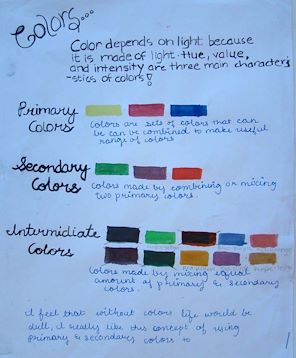 Colors....
Color depends on light because
it is made of light. Hue, value,
and intensity are three main characters
-stics of colors!
Primary
Colors
Colors are sets of colors that can
be can be combined to make useful
range of colors
Secondary
Colors
Colors made by combining or mixing
two primary colors.
Intermidiate
Colors
Colors made by mixing equal
amount of primary & secondary
colors.
I feel that without colors life would be
dull, I really like this concept of using
primary & secondary colors to